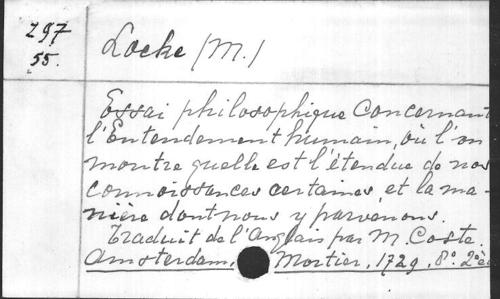 297
55.
Locke (M.)
Essai philosophique concernant
l'Entendement humain, où l'on
montre quelle est l'étendue de nos
connoissances certaines, et la ma-
nière dont nous y parvenons.
Traduit de l'Anglais par M. Coste.
Amsterdam, Mortier, 1729, 8º. 2º éd